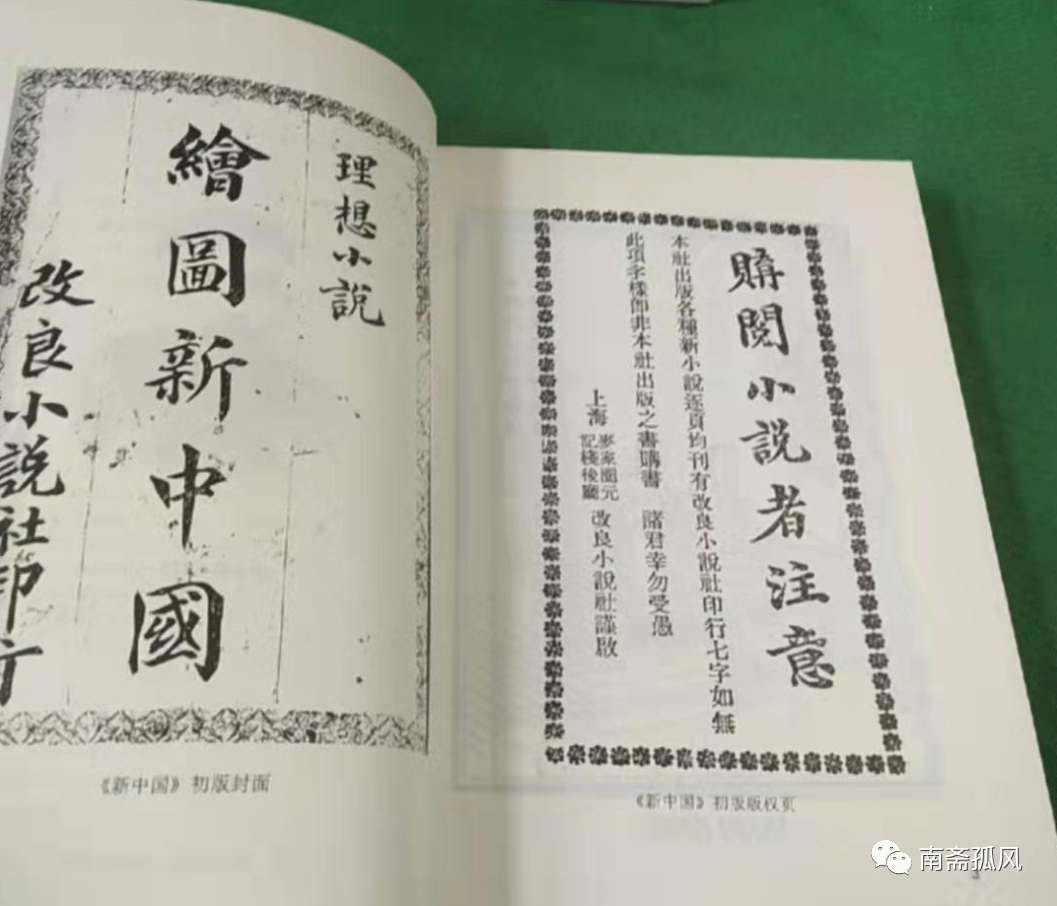 理想小說
繪圖新中國
改良小說社印行
《新中国》初版封面
購閱小說者注意
本社出版各種新小說逐頁均刊有改良小說社印行七字如無
此項字樣即非本社出版之書購書 諸君幸勿受愚
上海 麥家圈元記棧後廳 改良小說社謹啟
《新中国》初版版权页
南斋孤风